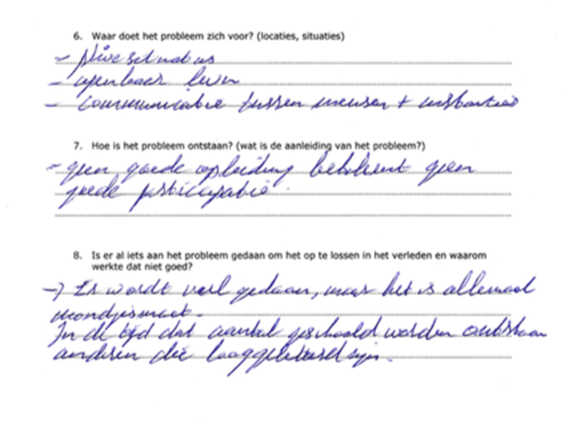 6. Waar doet het probleem zich voor? (locaties, situaties)
- Privé
- openbaar leven
- Communicatie tussen mensen + instanties
7. Hoe is het probleem ontstaan? (wat is de aanleiding van het probleem?)
- geen goede opleiding betekent geen
goede participatie.
8. Is er al iets aan het probleem gedaan om het op te lossen in het verleden en waarom
werkte dat niet goed?
-> Er wordt veel gedaan, maar het is allemaal
mondjesmaat.
In de tijd dat aantal geschoold worden ontstaan
anderen die laaggeletterd zijn.